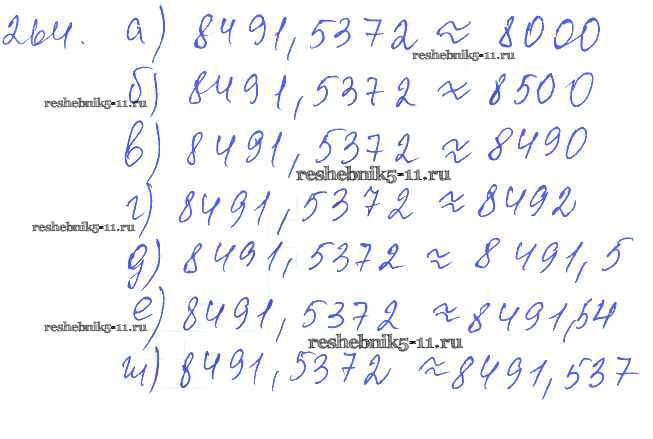 264. а) 8491,5372 ≈ 8000
reshebnik5-11.ru
б) 8491,5372 ≈ 8500
reshebnik5-11.ru
в) 8491,5372 ≈ 8490
reshebnik5-11.ru
г) 8491,5372 ≈ 8492
reshebnik5-11.ru
д) 8491,5372 ≈ 8491,5
е) 8491,5372 ≈ 8491,54
reshebnik5-11.ru
reshebnik5-11.ru
ж) 8491,5372 ≈ 8491,537